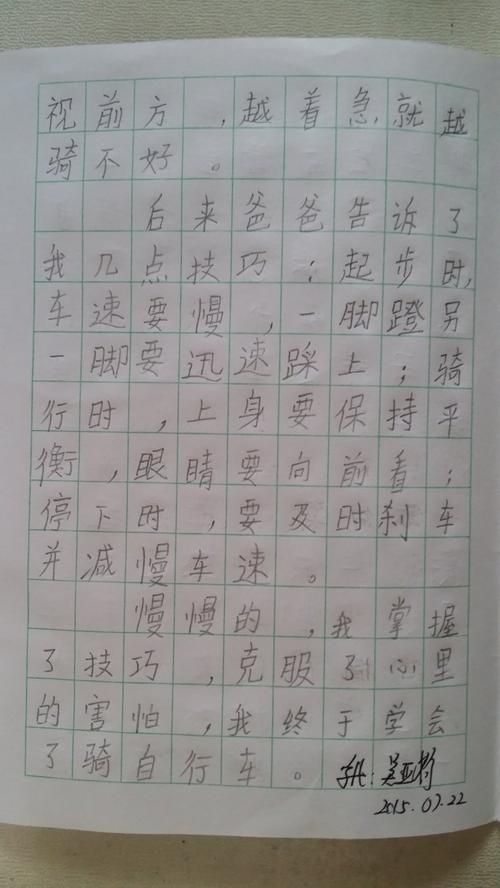 视前方，越着急，就越
骑不好。
后来爸爸告诉了
我几点技巧：起步时，
车速要慢，一脚蹬另
一脚要迅速踩上；骑
行时，上身要保持平
衡，眼睛要向前看；
停下时，要及时刹车
并减慢车速。
慢慢的，我掌握
了技巧，克服了心里
的害怕，我终于学会
了骑自行车。
2015.07.22